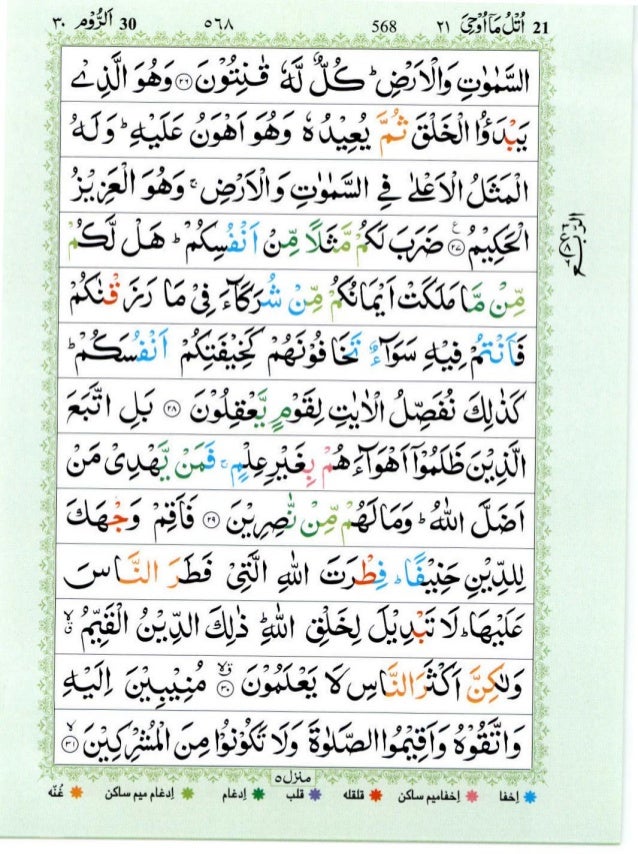 21 اُتْلُ مَاۤ اُوْحِیَ ٢١ 568 ٥٦٨ 30 اَلرُّوْم ٣٠
السَّمٰوٰتِ وَالْاَرْضِ ؕ كُلٌّ لَّهٗ قٰنِتُوْنَ ﴿۲۶﴾ وَهُوَ الَّذِیْ
یَبْدَؤُا الْخَلْقَ ثُمَّ یُعِیْدُهٗ وَهُوَ اَهْوَنُ عَلَیْهِ ؕ وَلَهُ
الْمَثَلُ الْاَعْلٰى فِی السَّمٰوٰتِ وَالْاَرْضِ ۚ وَهُوَ الْعَزِیْزُ
الْحَكِیْمُ ﴿۲۷﴾ ع ضَرَبَ لَكُمْ مَّثَلًا مِّنْ اَنْفُسِكُمْ ؕ هَلْ لَّكُمْ
مِّنْ مَّا مَلَكَتْ اَیْمَانُكُمْ مِّنْ شُرَكَآءَ فِیْ مَا رَزَقْنٰكُمْ
فَاَنْتُمْ فِیْهِ سَوَآءٌ تَخَافُوْنَهُمْ كَخِیْفَتِكُمْ اَنْفُسَكُمْ ؕ
كَذٰلِكَ نُفَصِّلُ الْاٰیٰتِ لِقَوْمٍ یَّعْقِلُوْنَ ﴿۲۸﴾ بَلِ اتَّبَعَ
الَّذِیْنَ ظَلَمُوْۤا اَهْوَآءَهُمْ بِغَیْرِ عِلْمٍ ۚ فَمَنْ یَّهْدِیْ مَنْ
اَضَلَّ اللّٰهُ ؕ وَمَا لَهُمْ مِّنْ نّٰصِرِیْنَ ﴿۲۹﴾ فَاَقِمْ وَجْهَكَ
لِلدِّیْنِ حَنِیْفًا ؕ فِطْرَتَ اللّٰهِ الَّتِیْ فَطَرَ النَّاسَ
عَلَیْهَا ؕ لَا تَبْدِیْلَ لِخَلْقِ اللّٰهِ ؕ ذٰلِكَ الدِّیْنُ الْقَیِّمُ ۙۗ
وَلٰكِنَّ اَكْثَرَ النَّاسِ لَا یَعْلَمُوْنَ ﴿۳۰﴾ ۗۙ مُنِیْبِیْنَ اِلَیْهِ
وَاتَّقُوْهُ وَاَقِیْمُوا الصَّلٰوةَ وَلَا تَكُوْنُوْا مِنَ الْمُشْرِكِیْنَ ﴿۳۱﴾ ۙ
منزل ٥
اِخفا اِخفامیم ساکن قلقله قلب اِدغام اِدغام میم ساکن غُنّه
الربع